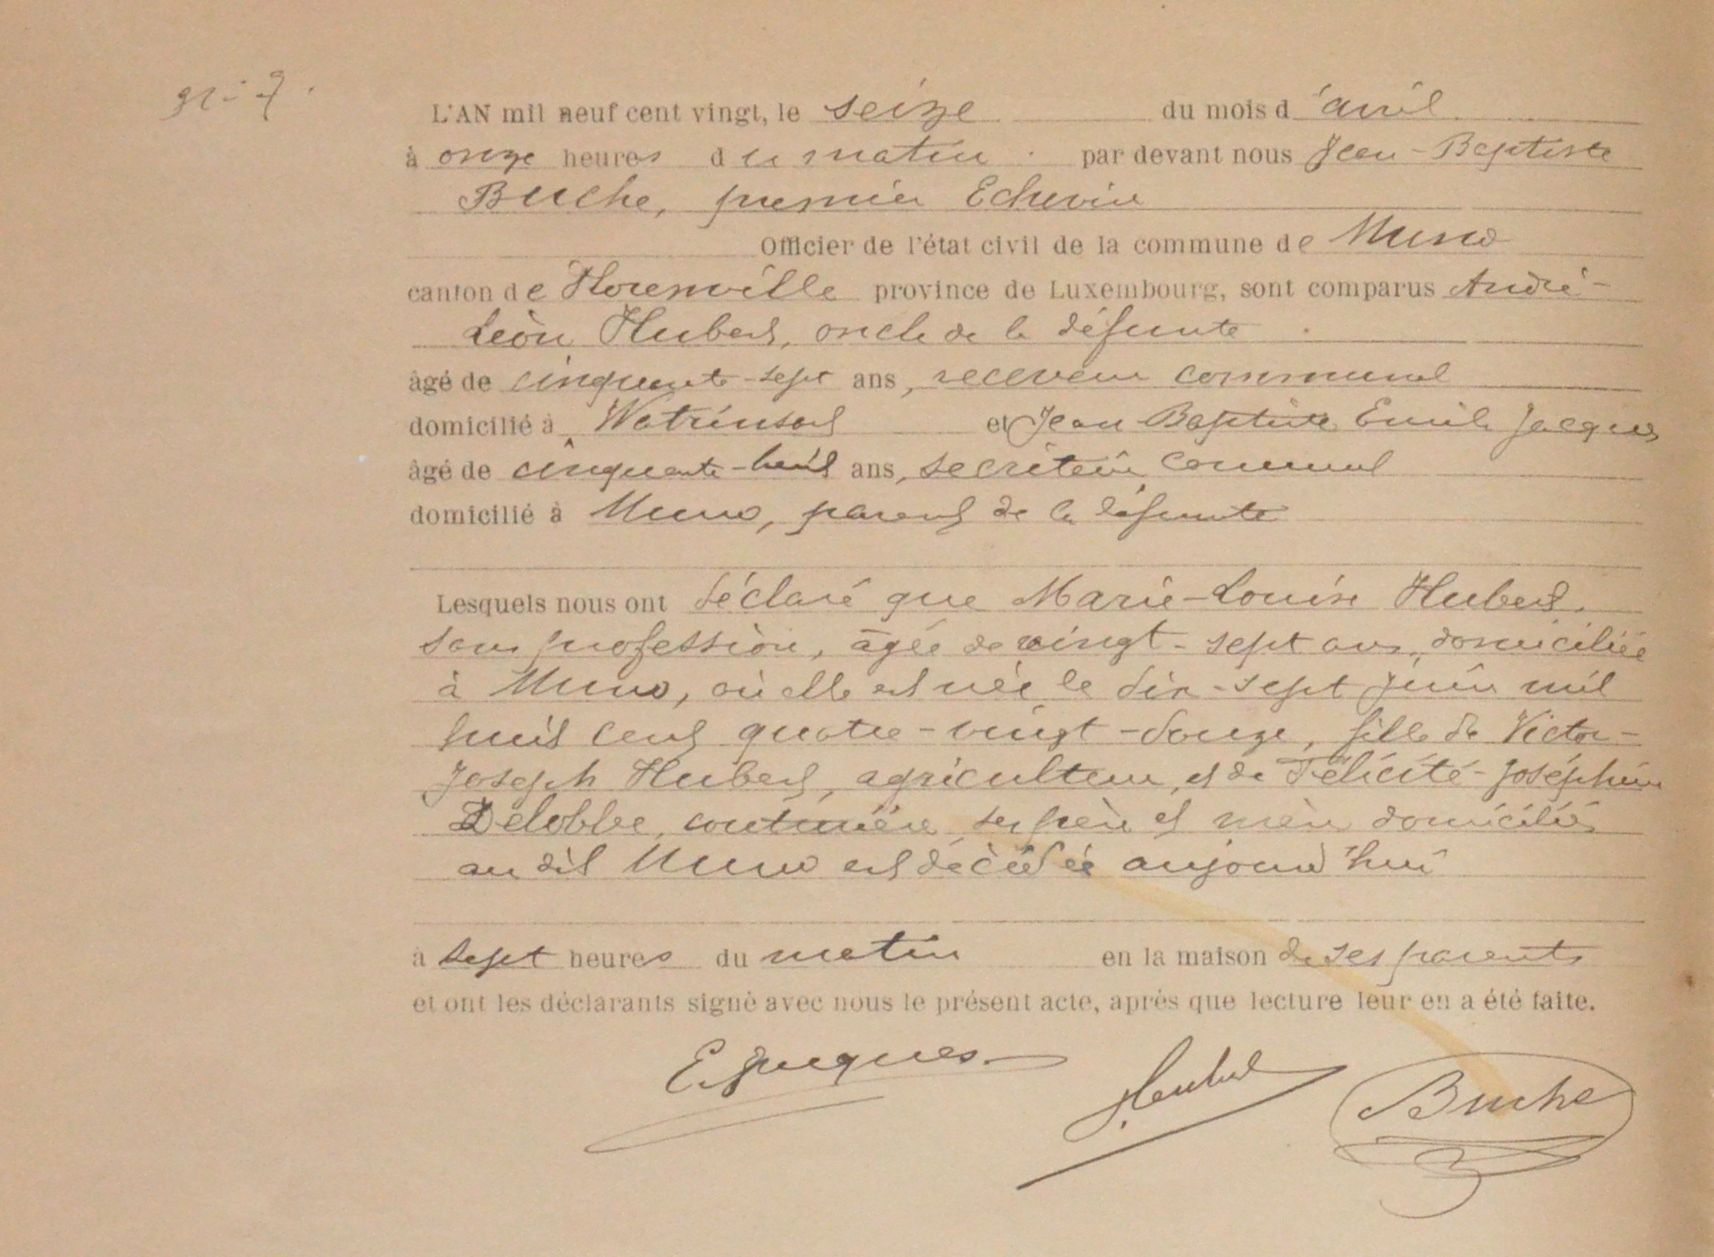 N° 7.
L'AN mil neuf cent vingt, le seize du mois d'avril
à onze heures du matin. par devant nous Jean-Baptiste
Buche, premier Echevin
Officier de l'état civil de la commune de Muno
canton de Florenville province de Luxembourg, sont comparus André-
Léon Hubert, oncle de la défunte.
âgé de cinquante-sept ans, receveur communal
domicilié à Watrinsart et Jean Baptiste Emile Jacques
âgé de cinquante-huit ans, secrétaire communal
domicilié à Muno, parent de la défunte
Lesquels nous ont déclaré que Marie-Louise Hubert.
sans profession, âgée de vingt-sept ans, domiciliée
à Muno, où elle est née le dix-sept juin mil
huit cent quatre-vingt-douze, fille de Victor-
Joseph Hubert, agriculteur, et de Félicité-Joséphine
Delobbe, couturière, ses père et mère domiciliés
au dit Muno est décédée aujourd'hui
à sept heures du matin en la maison de ses parents
et ont les déclarants signé avec nous le présent acte, après que lecture leur en a été faite.
E. Jacques Hubert Buche